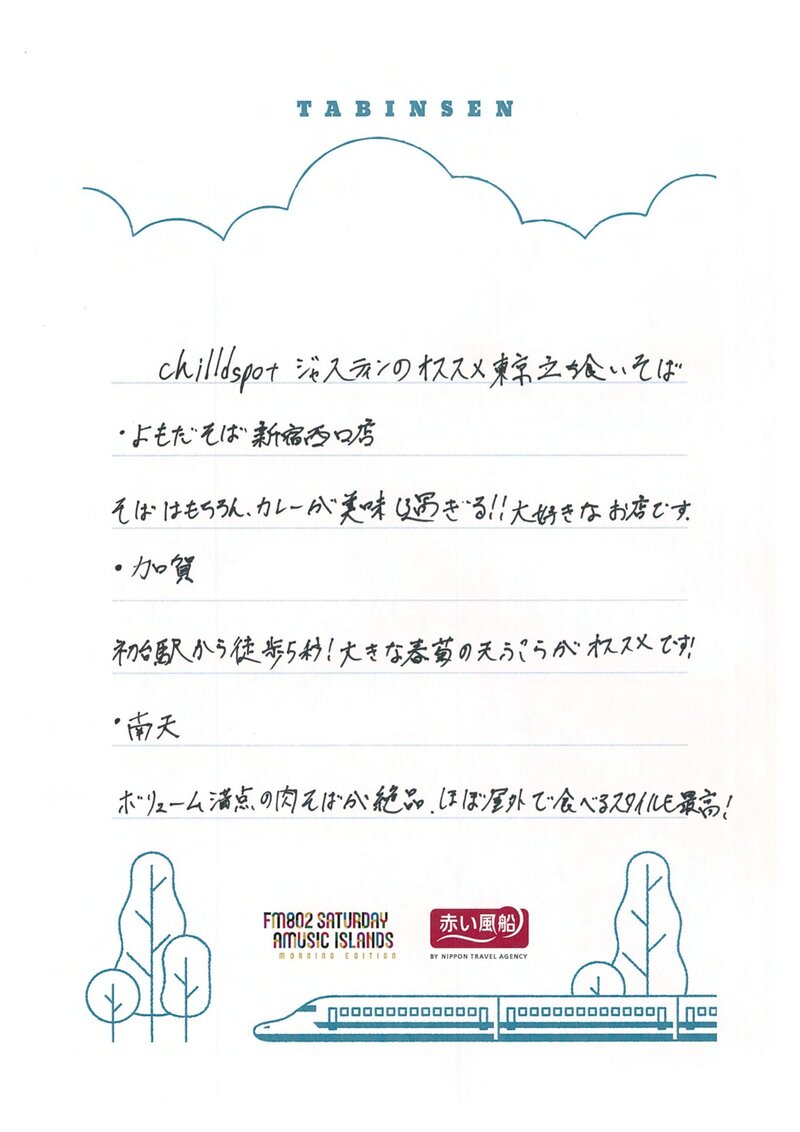 TABINSEN
chilldspot ジャスティンのオススメ東京立ち食いそば
・よもだそば新宿西口店
そばはもちろん、カレーが美味し過ぎる!!大好きなお店です。
・加賀
初台駅から徒歩5秒!大きな春菊の天ぷらがオススメです!
・南天
ボリューム満点の肉そばが絶品、ほぼ屋外で食べるスタイルも最高!
FM802 SATURDAY
AMUSIC ISLANDS
MORNING EDITION
赤い風船
BY NIPPON TRAVEL AGENCY